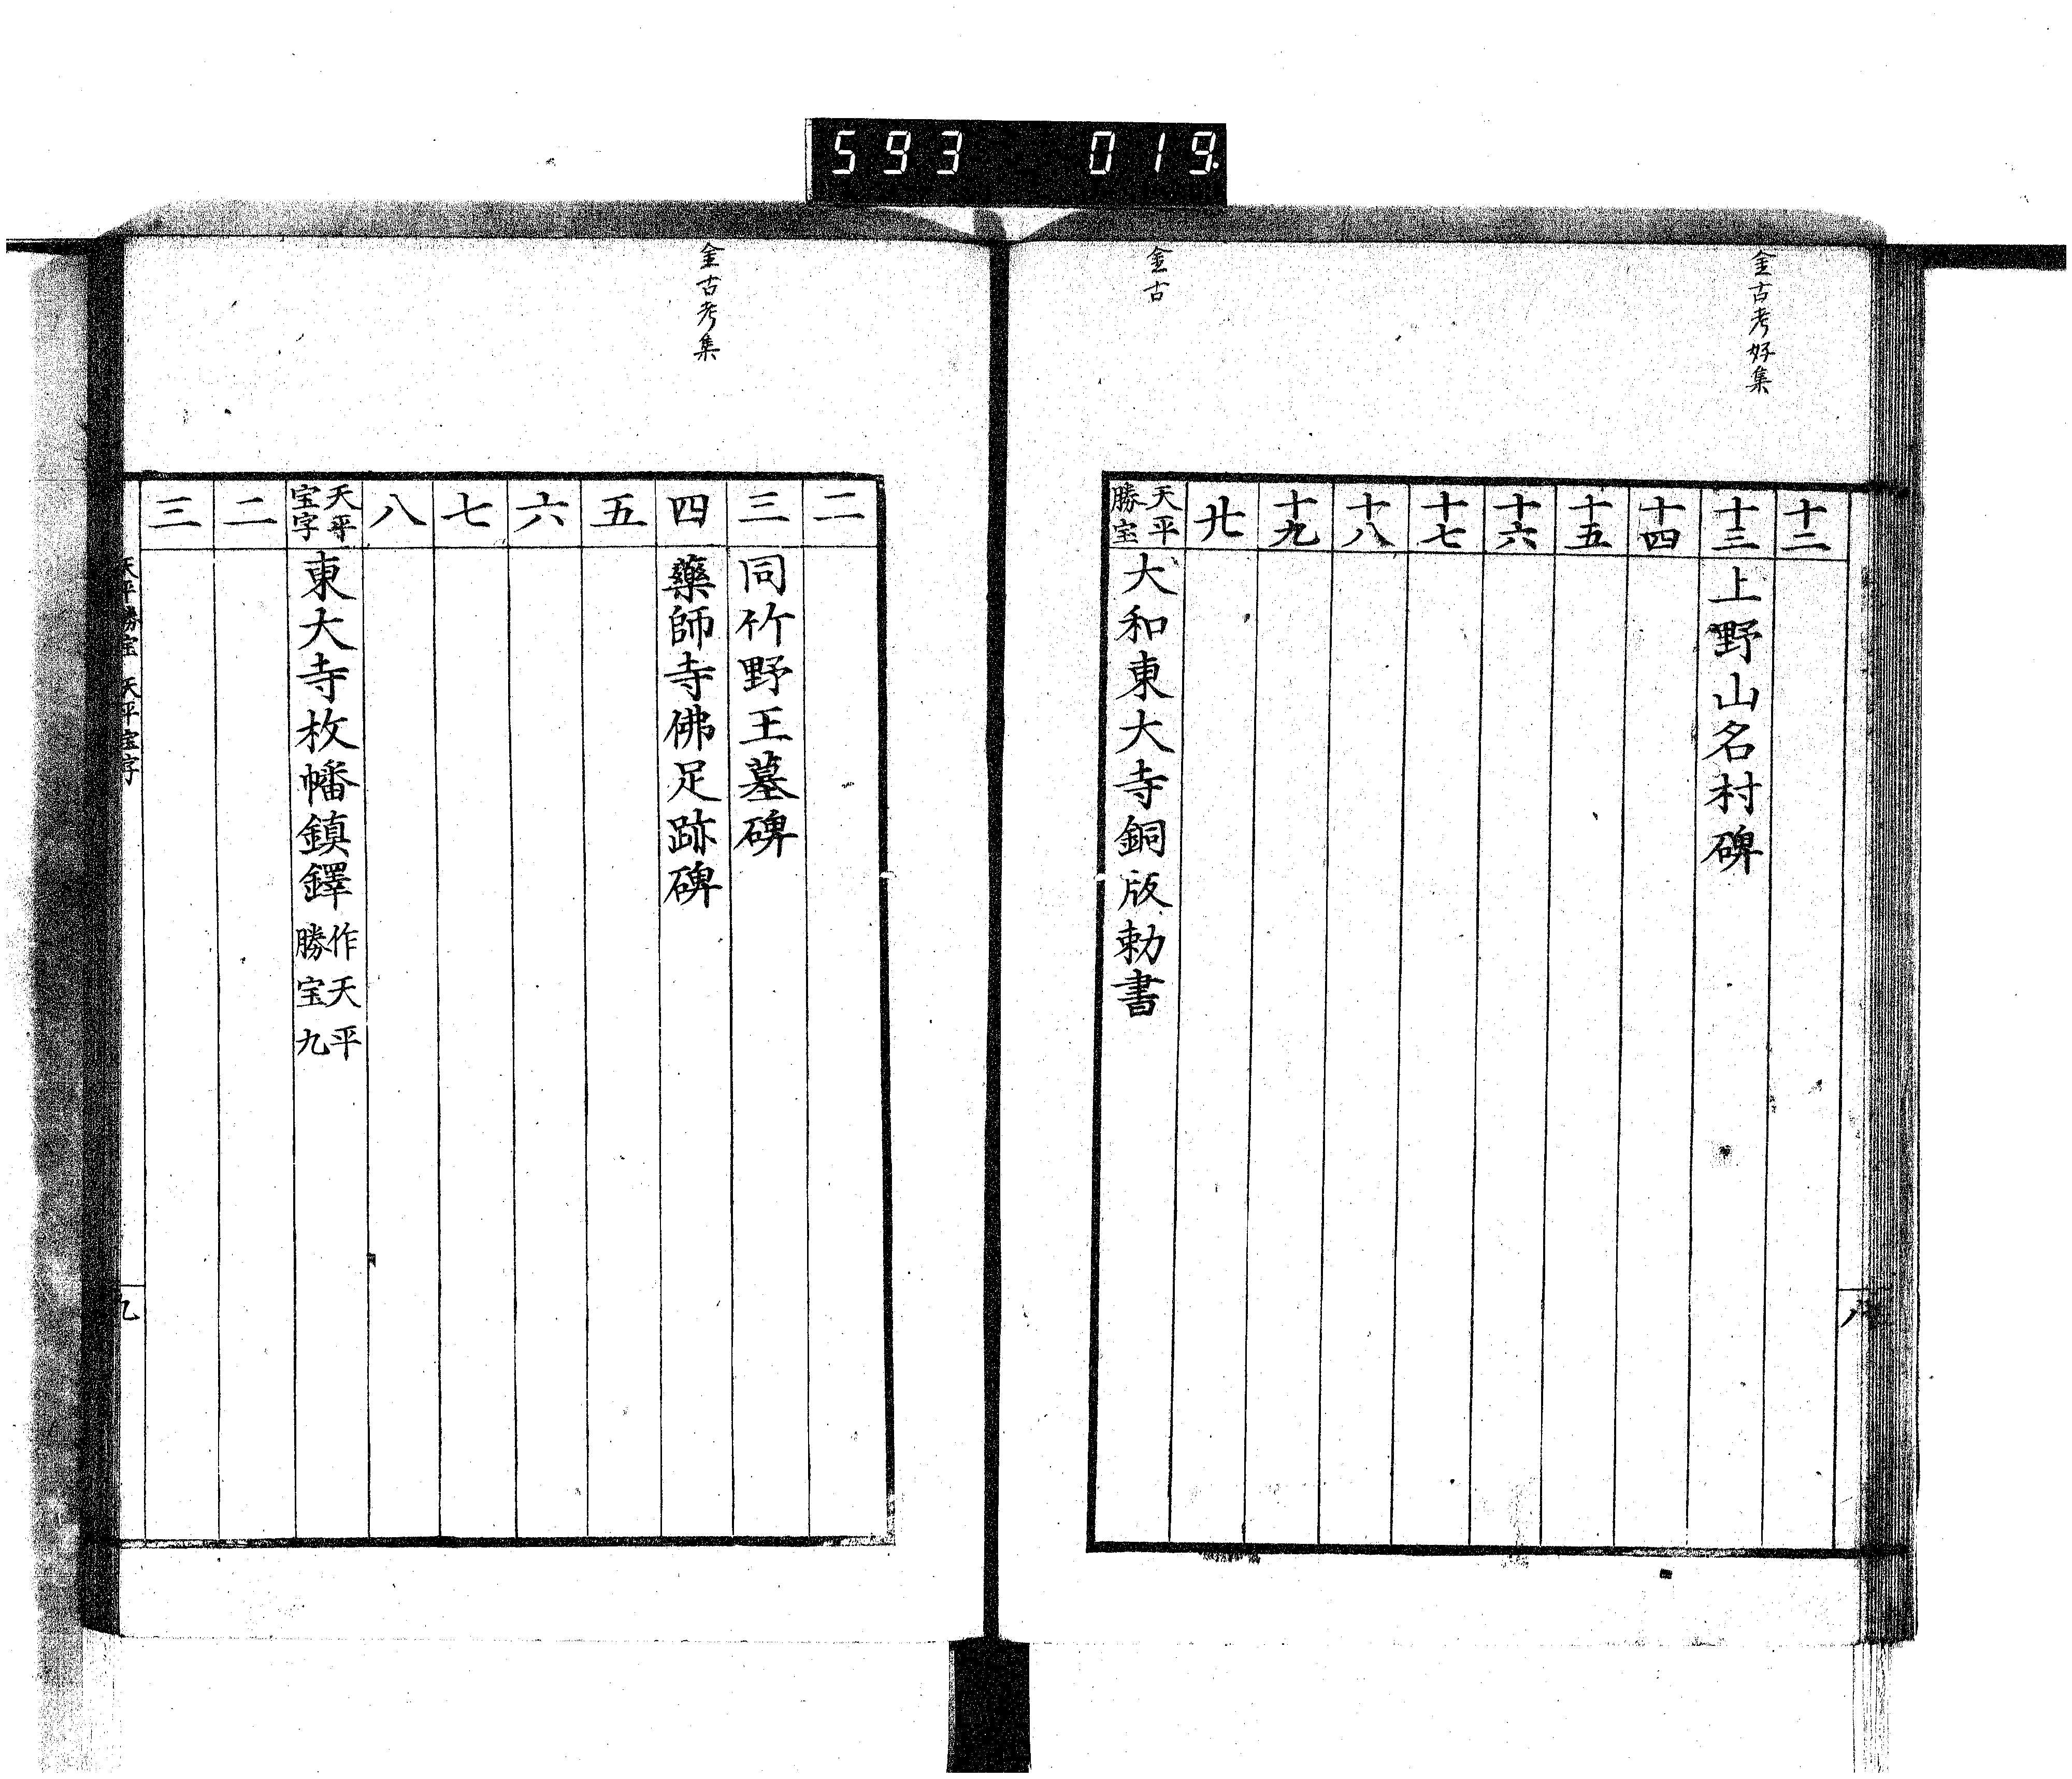 593 019
金古考好集
金古
八
十二
十三 上野山名村碑
十四
十五
十六
十七
十八
十九
廿
天平勝宝 大和東大寺銅版勅書
金古考集
二
三 同竹野王墓碑
四 藥師寺佛足跡碑
五
六
七
八
天平宝字 東大寺枚幡鎮鐸 作天平勝宝九
二
三
天平勝宝 天平宝字
九